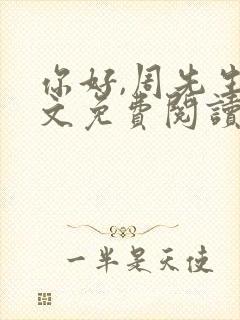 你好,周先生
文免费閱讀
一半是天使